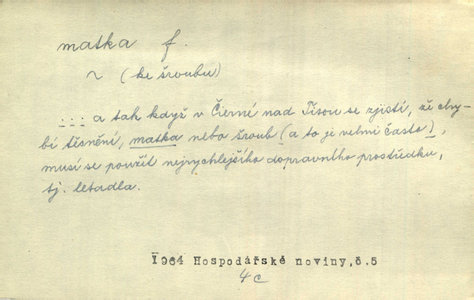 matka f.
~ (ke šroubu)
... a tak když v Čierné nad Tisou se zjistí, že chy-
bí těsnění, matka nebo šroub (a to je velmi často),
musí se použít nejrychlejšího dopravního prostředku,
tj. letadla.
1964 Hospodářské noviny,č.5
4c